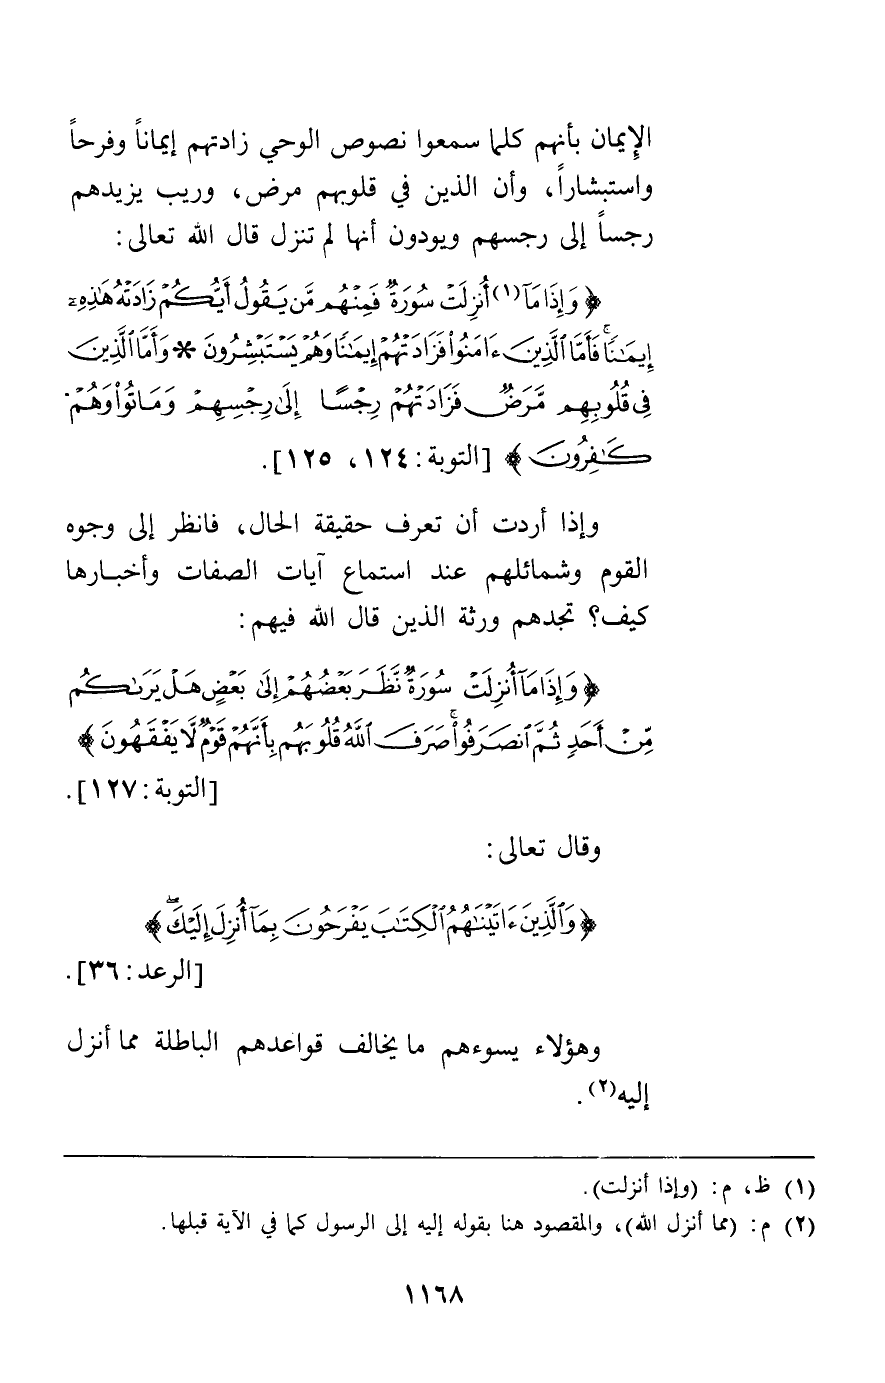 الإيمان بأنهم كلما سمعوا نصوص الوحي زادتهم إيماناً وفرحاً
واستبشاراً، وأن الذين في قلوبهم مرض، وريب يزيدهم
رجساً إلى رجسهم ويودون أنها لم تنزل قال الله تعالى:
﴿ وَإِذَا مَآ(١) أُنزِلَتْ سُورَةٌ فَمِنْهُم مَّن يَقُولُ أَيُّكُمْ زَادَتْهُ هَٰذِهِۦٓ
إِيمَٰنًاۚ فَأَمَّا ٱلَّذِينَ ءَامَنُوا۟ فَزَادَتْهُمْ إِيمَٰنًا وَهُمْ يَسْتَبْشِرُونَ * وَأَمَّا ٱلَّذِينَ
فِى قُلُوبِهِم مَّرَضٌ فَزَادَتْهُمْ رِجْسًا إِلَىٰ رِجْسِهِمْ وَمَاتُوا۟ وَهُمْ
كَٰفِرُونَ ﴾ [التوبة: ١٢٤، ١٢٥].
وإذا أردت أن تعرف حقيقة الحال، فانظر إلى وجوه
القوم وشمائلهم عند استماع آيات الصفات وأخبارها
كيف؟ تجدهم ورثة الذين قال الله فيهم:
﴿ وَإِذَا مَآ أُنزِلَتْ سُورَةٌ نَّظَرَ بَعْضُهُمْ إِلَىٰ بَعْضٍ هَلْ يَرَىٰكُم
مِّنْ أَحَدٍ ثُمَّ ٱنصَرَفُوا۟ۚ صَرَفَ ٱللَّهُ قُلُوبَهُم بِأَنَّهُمْ قَوْمٌ لَّا يَفْقَهُونَ ﴾
[التوبة: ١٢٧].
وقال تعالى:
﴿ وَٱلَّذِينَ ءَاتَيْنَٰهُمُ ٱلْكِتَٰبَ يَفْرَحُونَ بِمَآ أُنزِلَ إِلَيْكَۖ ﴾
[الرعد: ٣٦].
وهؤلاء يسوءهم ما يخالف قواعدهم الباطلة مما أنزل
إليه(٢).
(١) ظ، م: (وإذا أنزلت).
(٢) م: (مما أنزل الله)، والمقصود هنا بقوله إليه إلى الرسول كما في الآية قبلها.
١١٦٨